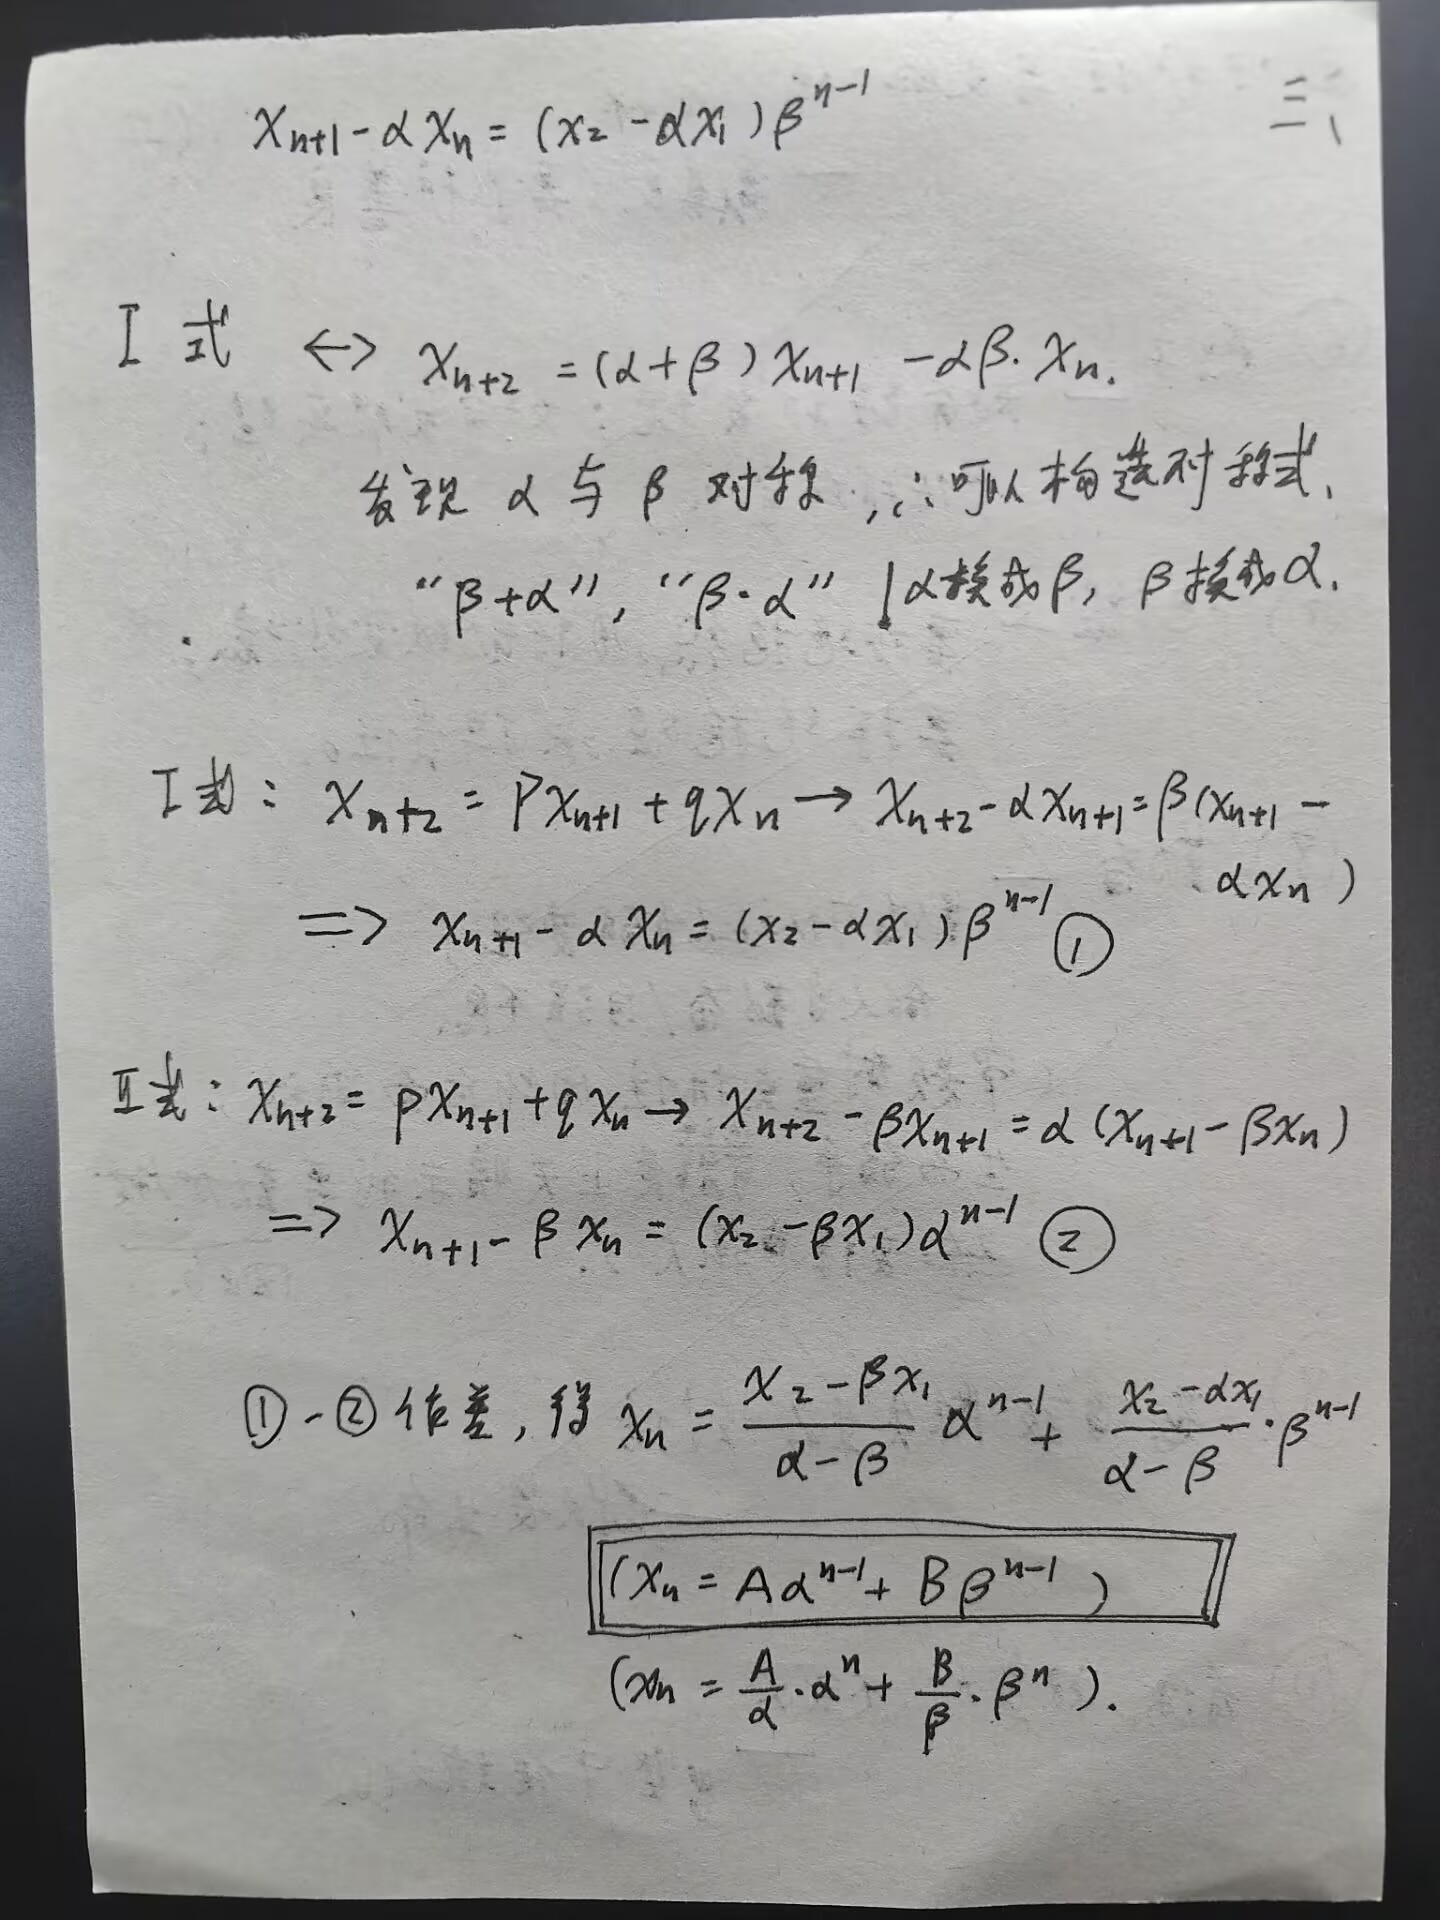 三、
xₙ₊₁ - αxₙ = (x₂ - αx₁)βⁿ⁻¹
I 式 <-> xₙ₊₂ = (α+β)xₙ₊₁ - αβ·xₙ.
发现 α 与 β 对称, ∴可以构造对称式,
“β+α”, “β·α” | α换成β, β换成α.
I式: xₙ₊₂ = Pxₙ₊₁ + qxₙ → xₙ₊₂ - αxₙ₊₁ = β(xₙ₊₁ -
αxₙ)
=> xₙ₊₁ - αxₙ = (x₂ - αx₁)βⁿ⁻¹ ①
II式: xₙ₊₂ = pxₙ₊₁ + qxₙ → xₙ₊₂ - βxₙ₊₁ = α(xₙ₊₁ - βxₙ)
=> xₙ₊₁ - βxₙ = (x₂ - βx₁)αⁿ⁻¹ ②
① - ② 作差, 得 xₙ = (x₂ - βx₁)/(α - β) αⁿ⁻¹ + (x₂ - αx₁)/(α - β) · βⁿ⁻¹
(xₙ = Aαⁿ⁻¹ + Bβⁿ⁻¹)
(xₙ = A/α · αⁿ + B/β · βⁿ).